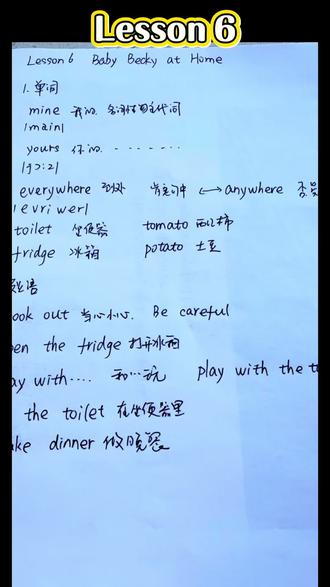 Lesson 6
Lesson 6 Baby Becky at Home
1. 单词
mine 我的. 名词性物主代词
/main/
yours 你的. - - - - - - -
/jɔ:z/
everywhere 到处 肯定句中 ⟷ anywhere 否
/evriwer/
toilet 坐便器 tomato 西红柿
fridge 冰箱 potato 土豆
短语
ook out 当心小心. Be careful
en the fridge 打开冰箱
ay with.... 和…玩 play with the t
the toilet 在坐便器里
ke dinner 做晚餐